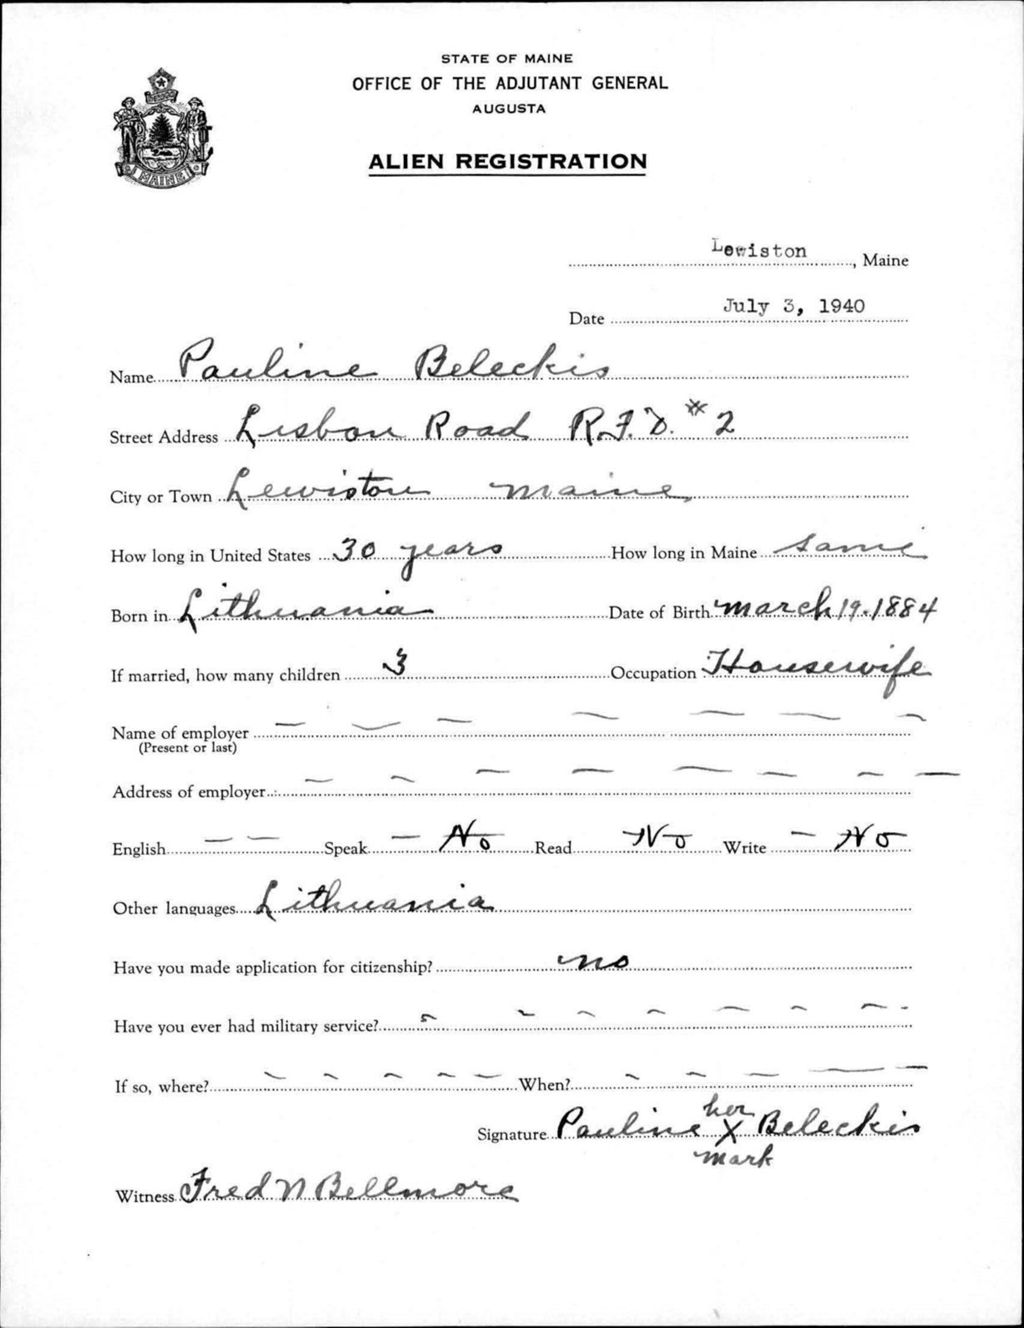 STATE OF MAINE
OFFICE OF THE ADJUTANT GENERAL
AUGUSTA
ALIEN REGISTRATION
MAINE
Lewiston, Maine
Date July 3, 1940
Name Pauline Beleckis
Street Address Lisbon Road R.F.D. #2
City or Town Lewiston Maine
How long in United States 30 years How long in Maine Same
Born in Lithuania Date of Birth March 19. 1884
If married, how many children 3 Occupation Housewife
Name of employer — — — — — — —
(Present or last)
Address of employer — — — — — — — —
English — — Speak — No Read No Write — No
Other languages Lithuania
Have you made application for citizenship? no
Have you ever had military service? - - - - - - - -
If so, where? - - - - - When? - - - - -
her
Signature Pauline X Beleckis
mark
Witness Fred N Bellmore